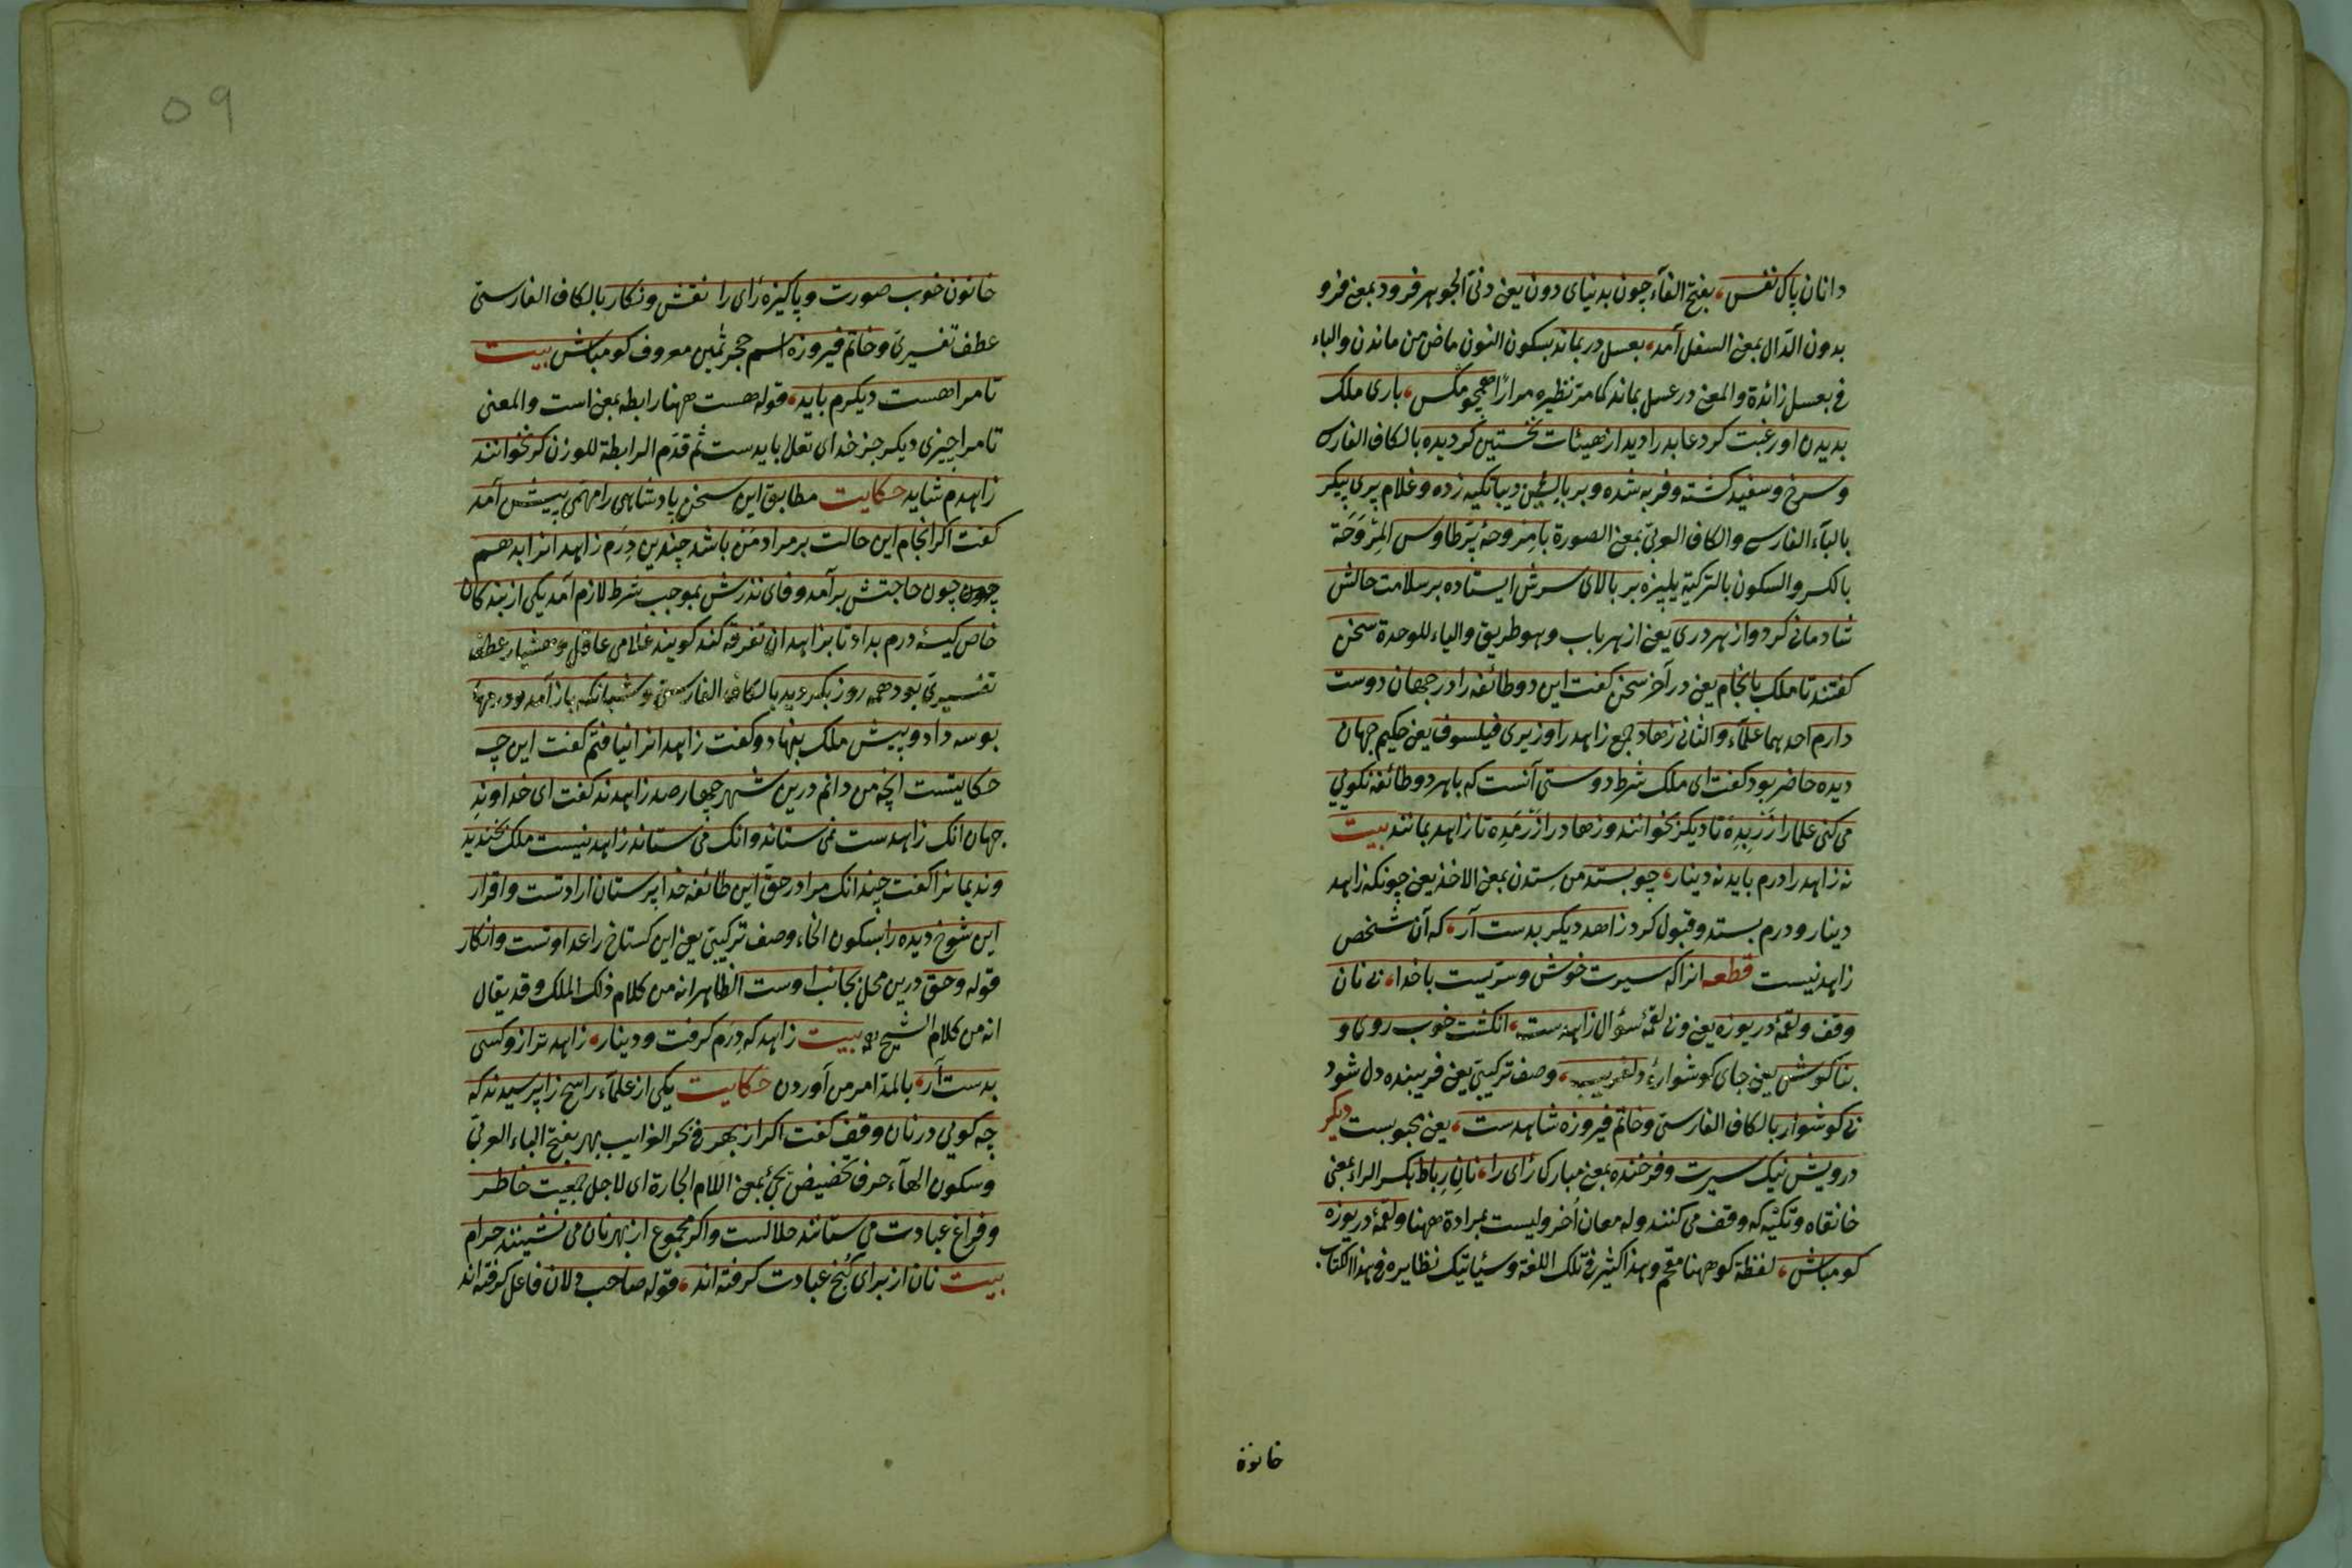 دانان پاک نفس، بفتح الفآء چون بدنیای دون یعنی دنی الجوهر فرود بمعنی فرو
بدون الدال بمعنی السفل آمد، بعسل در بماند بسکون النون ماض من ماندن والباء
فی بعسل زائدة والمعنی در عسل بماند کما مر نظیره مرارًا همچو مکس، باری ملک
بدیدن او رغبت کرد عابد را دید از هیئات نخستین کردیده بالکاف الفارس
وسرخ وسفید کشته وفربه شده وبر بالش دیبا تکیه زده وغلام پری پیکر
بالبآء الفارسی والکاف العربی بمعنی الصورة بامِروحهٔ پر طاوس المِروَحَة
بالکسر والسکون بالترکیة یلپیزه بر بالای سرش ایستاده بر سلامت حالش
شادمانی کرد واز هر دری یعنی از هر باب وهو طریق والیاء للوحدة سخن
کفتند تا ملک بانجام یعنی در آخر سخن کفت این دو طائفه را در جهان دوست
دارم احدهما علمآء والثانی زهاد جمع زاهد را وزیری فیلسوف یعنی حکیم جهان
دیده حاضر بود کفت ای ملک شرط دوستی آنست که باهر دو طائفه نکویی
می کنی علما را زر بده تا دیکر بخوانند وزهاد را زر مده تا زاهد بمانند بیت
نه زاهد را درم باید نه دینار، چو بستد من ستدن بمعنی الاخذ یعنی چونکه زاهد
دینار ودرم بستد وقبول کرد زاهد دیکر بدست آر، که آن شخص
زاهد نیست قطعه انرا که سیرت خوش وسریست باخدا، نی نان
وقف ولقمهٔ دریوزه یعنی ونی لقمهٔ سؤال زاهدست، انکشت خوب روی و
بناکوش یعنی جای کوشوارهٔ دلفریب، وصف ترکیبی یعنی فریبنده دل شود
نی کوشوار بالکاف الفارسی وخاتم فیروزه شاهدست، یعنی محبوبست دیکر
درویش نیک سیرت وفرخنده بمعنی مبارکی رای را، نانِ رِباط بکسر الراء بمعنی
خانقاه وتکیه که وقف می کنند وله معان اُخر ولیست بمرادة ههنا ولقمهٔ دریوزه
کومباش، لفظة کو ههنا مقحم وهذا کثیر فی تلک اللغة وسیأتیک نظایره فی هذا الکتاب
خاتون
خاتون خوب صورت وپاکیزه رای را نقش ونکار بالکاف الفارسی
عطف تفسیری وخاتم فیروزه اسم حجر ثمین معروف کومباش بیت
تا مرا هست دیکرم باید، قوله هست ههنا رابطه بمعنی است والمعنی
تا مرا چیزی دیکر جز خدای تعالی بایدست ثم قدم الرابطة للوزن کر نخوانند
زاهدم شاید حکایت مطابق این سخن پادشاهی را مهمی پیش آمد
کفت اکر انجام این حالت بر مراد من باشد چندین دِرَم زاهدانرا بدهم
چون حاجتش برآمد وفای نذرش بموجب شرط لازم آمد یکی از بندکان
خاص کیسهٔ درم بداد تا بزاهدان تفرقه کند کویند غلامی عاقل وهشیار عطف
تفسیری بود همه روز بکردید بالکاف الفارسی وشبانکه باز آمد ودرمها
بوسه داد وپیش ملک بنهاد وکفت زاهدانرا نیافتم کفت این چه
حکایتست انچه من دانم درین شهر چهارصد زاهدند کفت ای خداوندِ
جهان انک زاهدست نمی ستاند وانک می ستاند زاهد نیست ملک بخندید
وندیمانرا کفت چندانک مرا در حق این طائفه خدا پرستان ارادتست واقرار
این شوخ دیده را بسکون الخاء وصف ترکیبی یعنی این کستاخ را عداوتست وانکار
قوله وحق درین محل بجانب اوست الظاهر انه من کلام ذلک الملک وقد یقال
انه من کلام الشیخ بیت زاهد که دِرَم کرفت ودینار، زاهدتر ازو کسی
بدست آر، بالمد امر من آوردن حکایت یکی از علمآء راسخ را پرسیدند که
چه کویی در نان وقف کفت اکر از بهر فی بحر الغرایب بهر بفتح الباء العربی
وسکون الهآء حرف تخصیص یجئ بمعنی اللام الجارة ای لاجل جمعیت خاطر
وفراغ عبادت می ستانند حلالست واکر مجموع از بهر نان می نشینند حرام
بیت نان از برای کُنجِ عبادت کرفته اند، قوله صاحب دلان فاعل کرفته اند